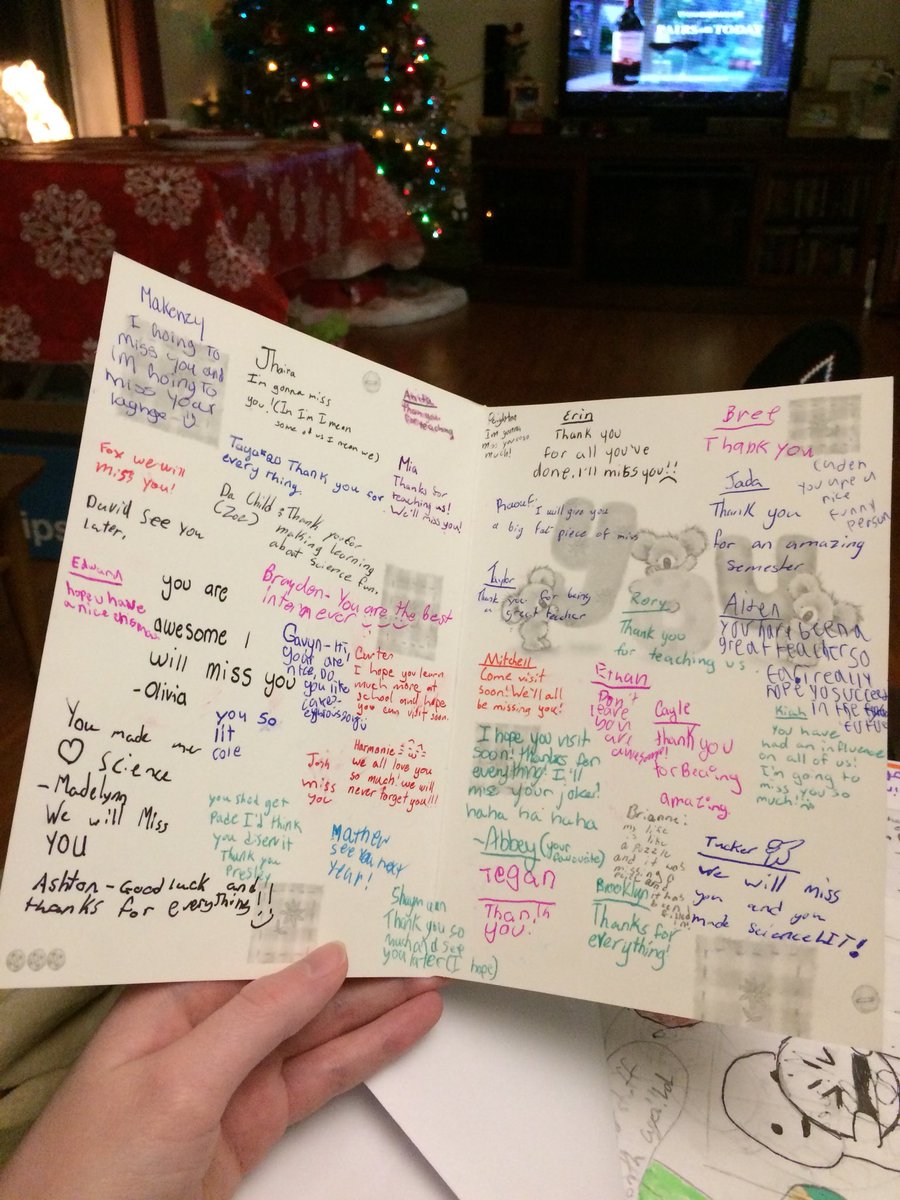 FAIRS TODAY
ips
Makenzy
I going to
miss you and
im going to
miss your
Jhaira
I'm gonna miss
you! (In I'm I mean
some of us I mean we)
thank you
for teaching
Fox we will
miss you!
Thank you for
every thing.
Mia
Thanks for
teaching us!
We'll miss you!
David see you
later,
Da Child
(Zoe)
Thank you for
making learning
about science fun.
Edward
hope u have
a nice
you are
awesome I
will miss you
-Olivia
Braydon- You are the best
intern ever
Gavyn-Hi,
your are
nice, DO
you like
cake-
Carter
I hope you learn
much more at
school and hope
you can visit soon.
you so
lit
cole
You made me
♡ Science
-Madelynn
We will Miss
YOU
Josh
miss
you
Harmonie
we all love you
so much! we will
never forget you!!!
you shod get
Pade I'd think
you diservit
Thank you
Presley
Mathew
see you next
year!
Ashton-Good luck and
thanks for everything!!
Thank you so
much and see
you later (I hope)
I'm gonna
miss you so
much!
Erin
Thank you
for all you've
done. I'll miss you!!
Bree
Thank you
I will give you
a big fat piece of miss
Jada
Thank you
for an amazing
semester
you are a
nice
funny
person
Taylor
Thank you for being
a great teacher
Rory
Thank you
for teaching us
You have been a
great teacher so
far I really
hope yo succeed
in the
future
Mitchell
Come visit
soon! We'll all
be missing you!
Ethan
Don't
leave
you are
awesome!
Cayle
thank you
for Becing
amazing
You have
had an influence
on all of us!
I'm going to
miss you so
much!
I hope you visit
soon! thanks for
everything! I'll
miss your jokes!
haha ha haha
~Abbey (your favourite)
Brianne:
my life
is like
a puzzle
and it was
missing a
piece and
it has
been
filled
in.
Tucker
We will miss
you and you
made science LIT!
Tegan
Thank
you!
Brooklyn
Thanks for
everything!